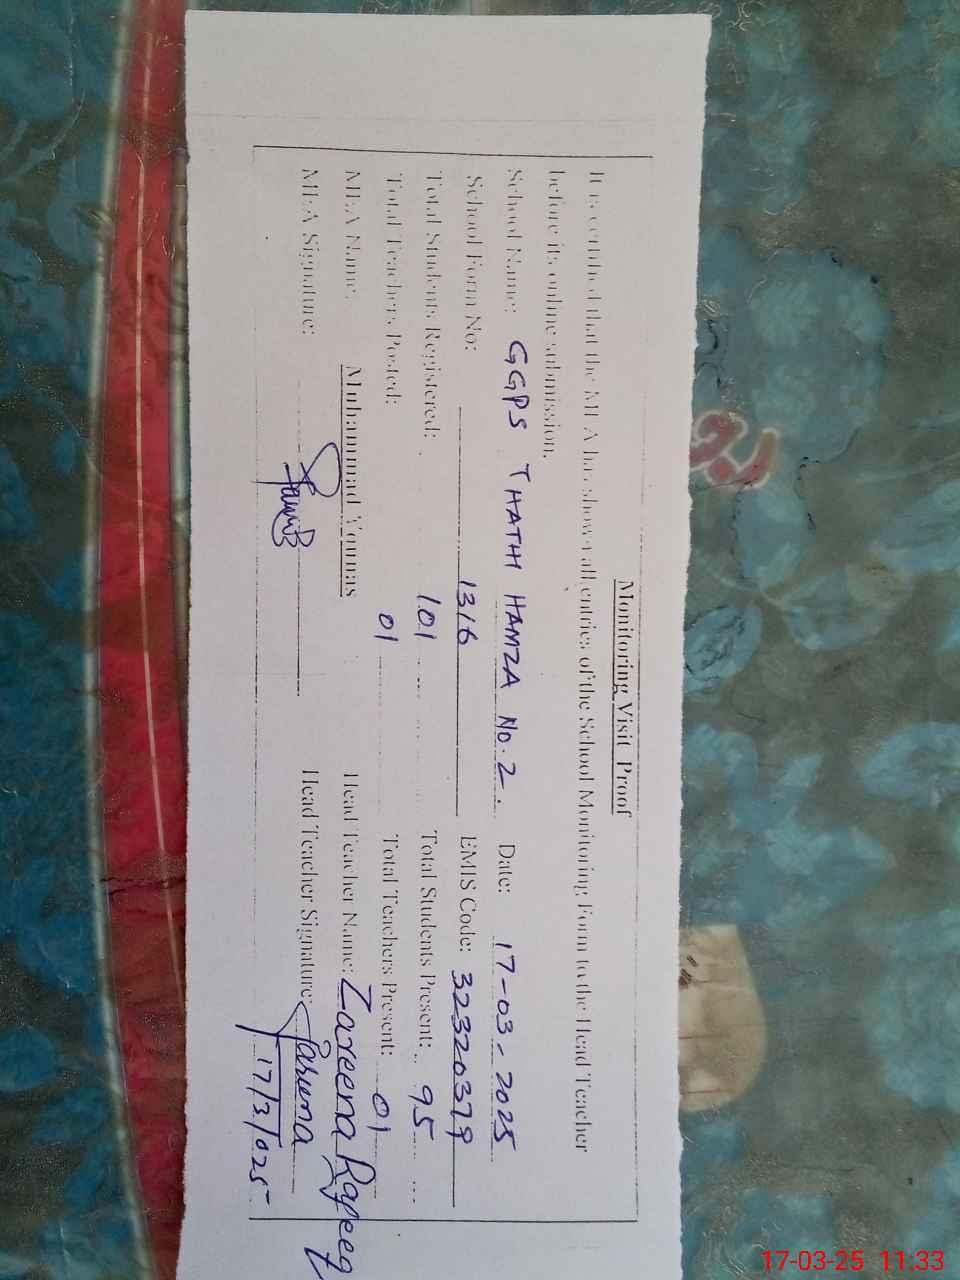 Monitoring Visit Proof
It is certified that the MEA has shown all entries of the School Monitoring Form to the Head Teacher
before its online submission.
School Name: GGPS THATHI HAMZA No. 2. Date: 17-03-2025
School Form No: 1316 EMIS Code: 32320379
Total Students Registered: 101 Total Students Present: 95
Total Teachers Posted: 01 Total Teachers Present: 01
MEA Name: Muhammad Younas Head Teacher Name: Zareena Rafeeq
MEA Signature: Head Teacher Signature:
17/3/025
17-03-25 11:33